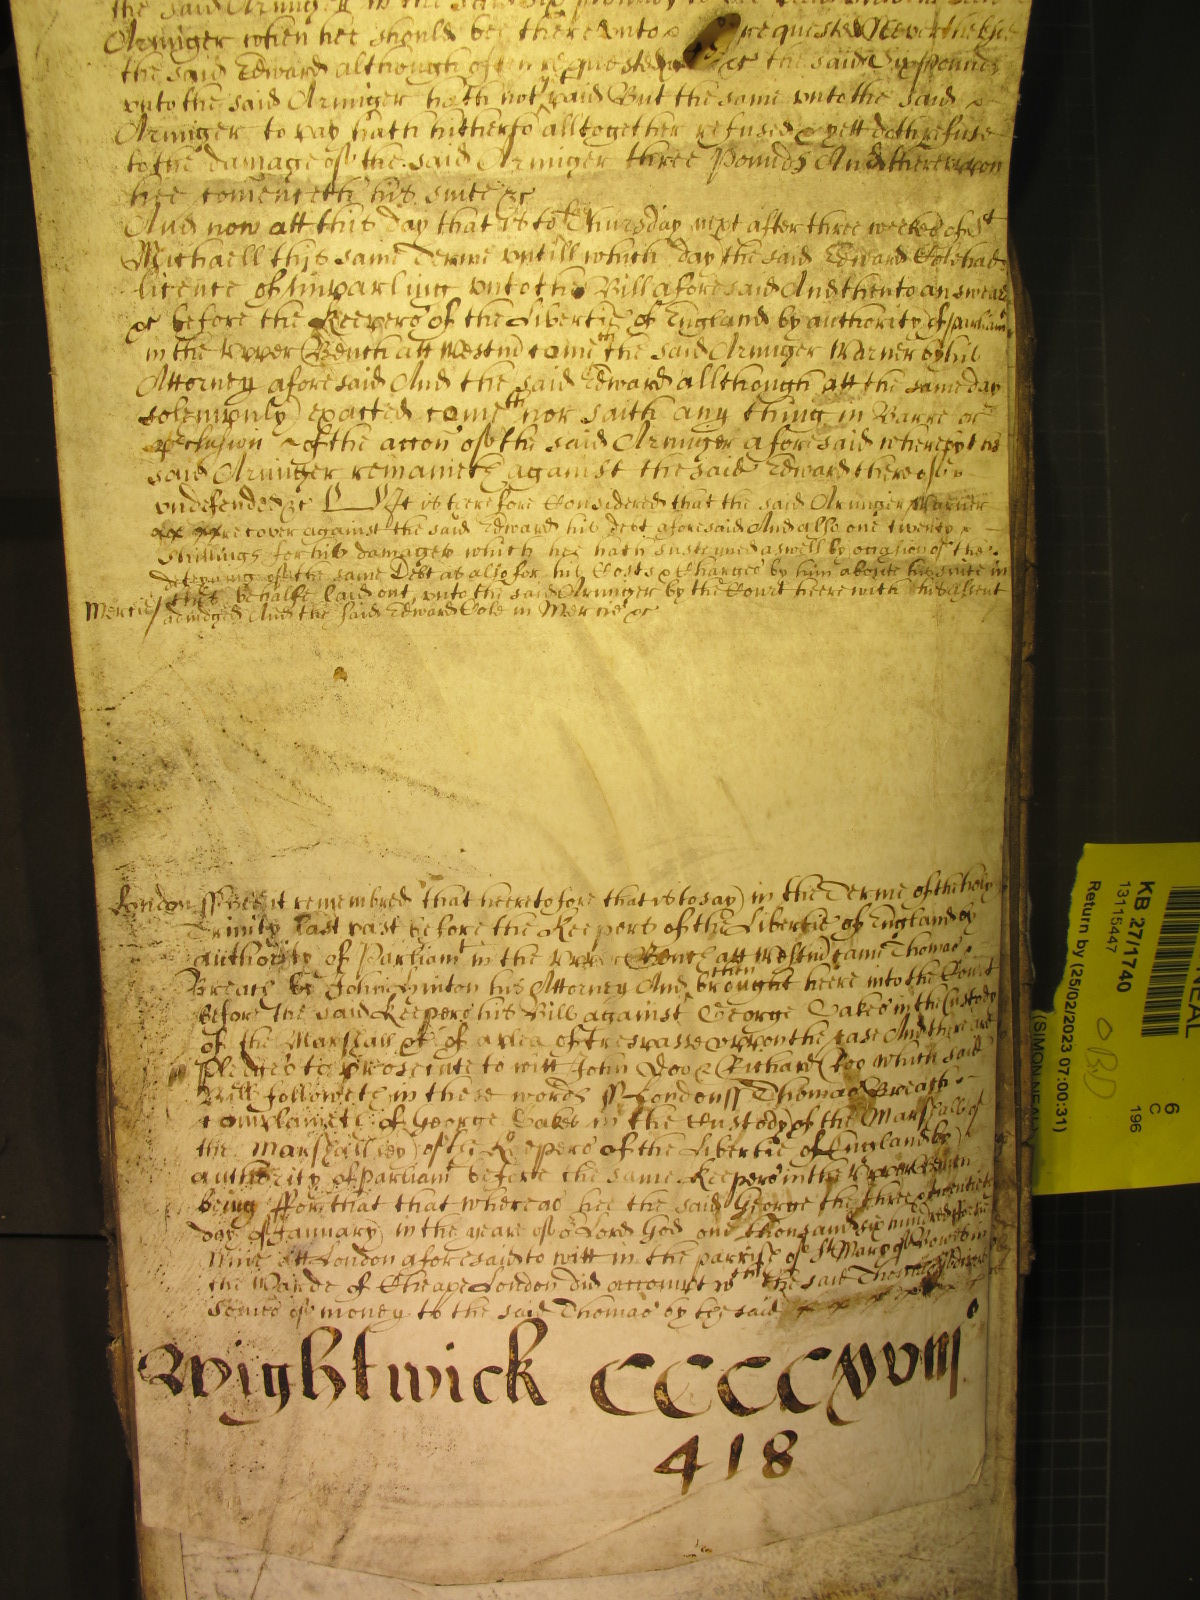 the said Arminger in the
Arminger when hee should bee thereunto requested Neverthelesse
the said Edward although often requested &c the said Six pounds
unto the said Arminger hath not paid But the same unto the said
Arminger to pay hath hitherto alltogether refused & yett doth refuse
to the damage of the said Arminger three Pounds And thereuppon
hee comenceth his suite &c
And now att this day that is to say Thursday next after three weekes of St
Michaell this same Terme untill which day the said Edward Cole had
licence of imparling unto the Bill aforesaid And then to answeare
&c before the Keepers of the Libertie of England by authority of Parliamt
in the Upper Bench att Westmr cometh the said Arminger Warner by his
Attorney aforesaid And the said Edward allthough att the same day
solempnly exacted cometh nor saith any thing in Barre or
preclusion of the accon of the said Arminger aforesaid whereby the
said Arminger remaineth against the said Edward thereof
undefended &c It is therefore Considered that the said Arminger Warner
recover against the said Edward his Debt aforesaid And allso one twenty
Shillings for his damages which hee hath susteyned aswell by occasion of the
deteyning of the same Debt as also for his Costs & Charges by him aboute his suite in
this behalfe laid out unto the said Arminger by the Court heere with his assent
Mercie adiudged And the said Edward Cole in Mercie &c
London ss Bee it remembred that heeretofore that is to say in the Terme of the holy
Trinity last past before the Keepers of the Libertie of England by
authority of Parliamt in the Upper Bench att Westmr came Thomas
Breach by John Hinton his Attorney And brought heere into the Court
then
before the said Keepers his Bill against George Oakes in the Custody
of the Marshall &c of a plea of trespasse uppon the case And there are
Pledges to prosecute to witt John Doo & Richard Roo which said
Bill followeth in these words ss London ss Thomas Breach
complaineth of George Oakes in the Custody of the Marshall of
the Marshallsey of the Keepers of the Libertie of England by
authority of Parliamt before the same Keepers in the Upper Bench
being ffor that that whereas hee the said George the three & twentieth
day of January in the yeare of or Lord God one thousand six hundred fortie
nine att London aforesaid to witt in the parrish of St Mary of Bowe in
the Warde of Cheape London did accompt with the said Thomas
somes of money to the said Thomas by the said
Wightwick CCCCXVIII
418
KB 27/1740
13115447
Return by (25/02/2023 07:00:31)
(SIMON NEAL)
6
C
196